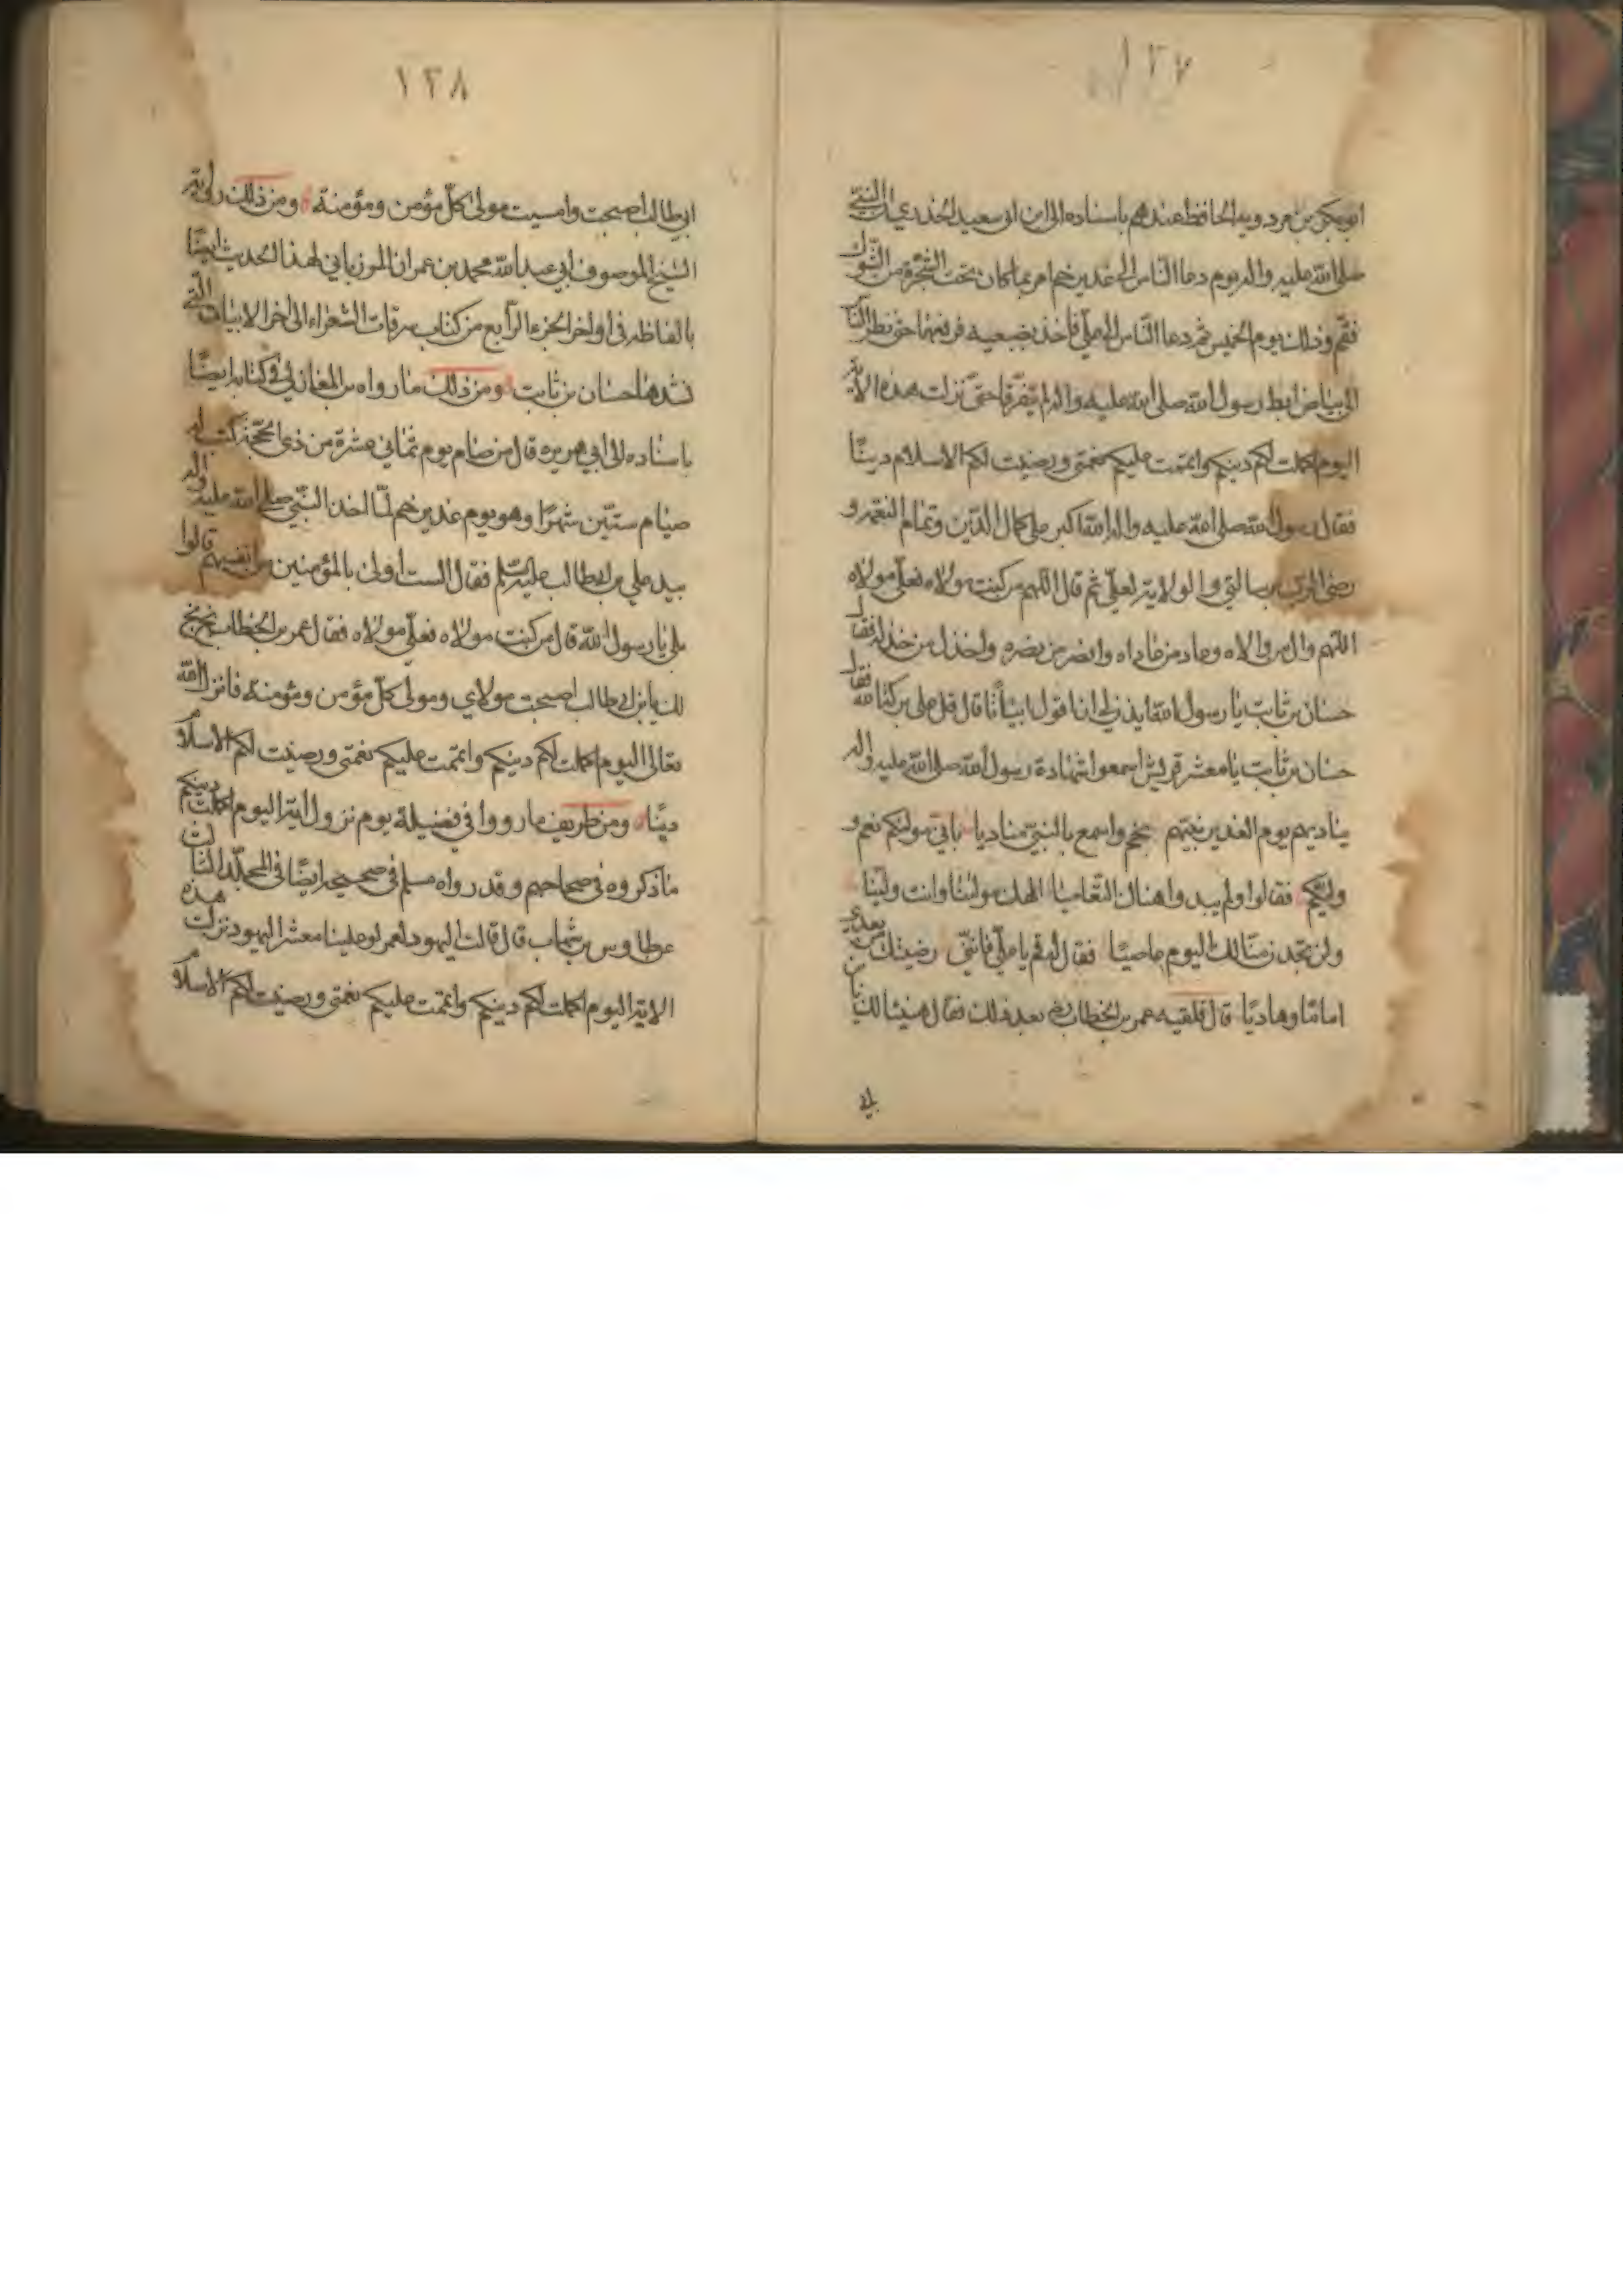 ١٣٧
ابوبكر بن مردويه الحافظ عندهم باسناده الى ابى سعيد الخدري ان النبي
صلى الله عليه واله يوم دعا الناس الى غدير خم امر بما كان تحت الشجرة من الشوك
فقم وذلك يوم الخميس ثم دعا الناس الى علي فاخذ بضبعيه فرفعهما حتى نظر الناس
الى بياض ابط رسول الله صلى الله عليه واله لم يتفرقا حتى نزلت هذه الاية
اليوم اكملت لكم دينكم واتممت عليكم نعمتي ورضيت لكم الاسلام دينًا
فقال رسول الله صلى الله عليه واله الله اكبر على كمال الدين وتمام النعمة و
رضى الرب برسالتي والولاية لعلي ثم قال اللهم من كنت مولاه فعلي مولاه
اللهم وال من والاه وعاد من عاداه وانصر من نصره واخذل من خذله فقال
حسان بن ثابت يا رسول الله ايذن لي ان اقول ابياتًا قال قل على بركة الله فقال
حسان بن ثابت يا معشر قريش اسمعوا شهادة رسول الله صلى الله عليه واله
يناديهم يوم الغدير نبيهم بخم واسمع بالنبي مناديا باني موليكم نعم و
وليكم فقالوا ولم يبدوا هناك التعاميا الهك مولينا وانت ولينا
ولن تجدن منا لك اليوم عاصيًا فقال له قم يا علي فانني رضيتك من بعدي
امامًا وهاديًا قال فلقيه عمر بن الخطاب بعد ذلك فقال هنيئا لك يا بن
١٣٨
ابي طالب اصبحت وامسيت مولى كل مؤمن ومؤمنة ومن ذلك رواية
الشيخ الموصوف ابي عبد الله محمد بن عمران المرزباني لهذا الحديث ايضًا
بالفاظه في اواخر الجزء الرابع من كتاب سرقات الشعراء الى اخر الابيات التي
نشدها حسان بن ثابت ومن ذلك ما رواه بن المغازلي في كتابه ايضًا
باسناده الى ابي هريره قال من صام يوم ثماني عشرة من ذي الحجة كتب له
صيام ستين شهرًا وهو يوم غدير خم لما اخذ النبي صلى الله عليه واله
بيد علي بن ابي طالب عليه السلم فقال الست اولى بالمؤمنين من انفسهم قالوا
بلى يا رسول الله قال من كنت مولاه فعلي مولاه فقال عمر بن الخطاب بخ بخ
لك يا بن ابي طالب اصبحت مولاي ومولى كل مؤمن ومؤمنة فانزل الله
تعالى اليوم اكملت لكم دينكم واتممت عليكم نعمتي ورضيت لكم الاسلام
دينًا ومن طريف ما رووا في فضيلة يوم نزول اية اليوم اكملت دينكم
ما ذكروه في صحاحهم وقد رواه مسلم في صحيحه ايضًا في المجلد الثالث
عن طاوس بن شهاب قال قالت اليهود لعمر لو علينا معشر اليهود نزلت هذه
الاية اليوم اكملت لكم دينكم واتممت عليكم نعمتي ورضيت لكم الاسلام